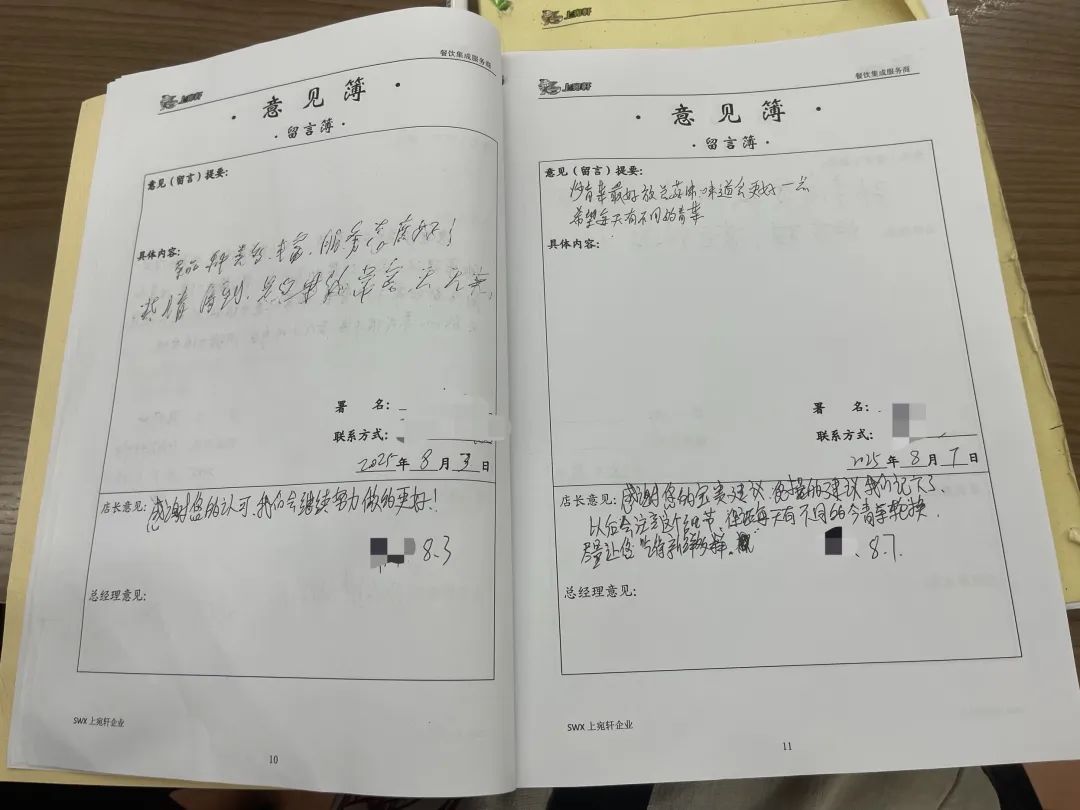 上宛轩
上宛轩
餐饮集成服务商
·意见簿·
·留言簿·
意见（留言）提要：
具体内容：
菜品种类多，丰富，服务态度好！
热情周到
署 名：
联系方式：
2025年8月3日
店长意见：感谢您的认可，我们会继续努力做的更好！
8.3
总经理意见：
SWX 上宛轩企业
10
上宛轩
餐饮集成服务商
·意见簿·
·留言簿·
意见（留言）提要：
炒青菜最好放点蒜味道会更好一点
希望每天有不同的青菜
具体内容：
署 名：
联系方式：
2025年8月7日
店长意见：感谢您的宝贵建议，您提的建议我们记下了，
以后会注意这个细节，保证每天有不同的青菜轮换，
尽量让您
8.7.
总经理意见：
SWX 上宛轩企业
11